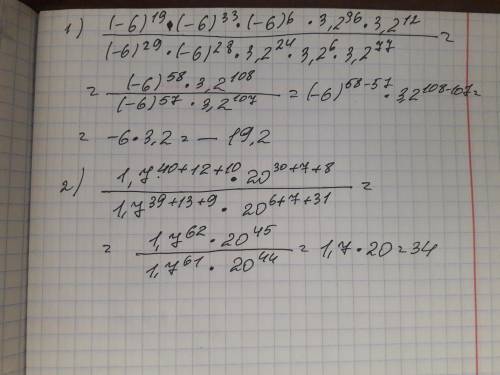 1) (-6)^19 · (-6)^33 · (-6)^6 · 3,2^96 · 3,2^12
(-6)^29 · (-6)^28 · 3,2^24 · 3,2^6 · 3,2^77 =
= (-6)^58 · 3,2^108 / (-6)^57 · 3,2^107 = (-6)^58-57 · 3,2^108-107 =
= -6 · 3,2 = - 19,2
2) 1,7^40+12+10 · 20^30+7+8
1,7^39+13+9 · 20^6+7+31 =
= 1,7^62 · 20^45 / 1,7^61 · 20^44 = 1,7 · 20 = 34